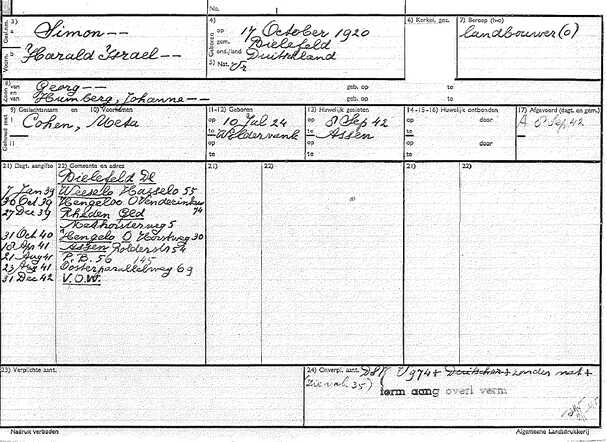 No.
3)
Simon--
4)
op
17 October 1920
6) Kerkel. gez.
7) Beroep (h-o)
Harald Israel--
te
gem.
Bielefeld
landbouwer (o)
ond./land
Duitschland
5) Nat.
8)
van
Georg--
geb. op
te
en van
Humberg, Johanne--
geb. op
te
9) Geslachtsnaam en 10) Voornamen
11-12) Geboren
13) Huwelijk gesloten
14-15-16) Huwelijk ontbonden
17) Afgevoerd (dagt. en gem.)
Cohen, Meta
op
10 Jul 24
op
8 Sep 42
op
door
A 8 Sep. 42
te
Wildervank
te
Assen
te
11
op
op
op
door
te
te
te
21) Dagt. aangifte
22) Gemeente en adres
21)
22)
21)
22)
Bielefeld Dl
7 Jan 39
Weerselo Hasselo 55
30 Oct 39
Hengeloo O
74
27 Dec 39
Rheden Gld
5
31 Oct 40
Hengelo O Horstweg 30
18 Apr 41
Assen Rolderstr 54
21 Aug 41
P. B. 56 145
23 Aug 41
Oosterparallelweg 69
31 Dec 42
V.O.W.
23) Verplichte aant.
24) Onverpl. aant.
Duitscher + zonder nat +
(Zie vol. 35)
form aang overl verm
Nadruk verboden
Algemeene Landsdrukkerij